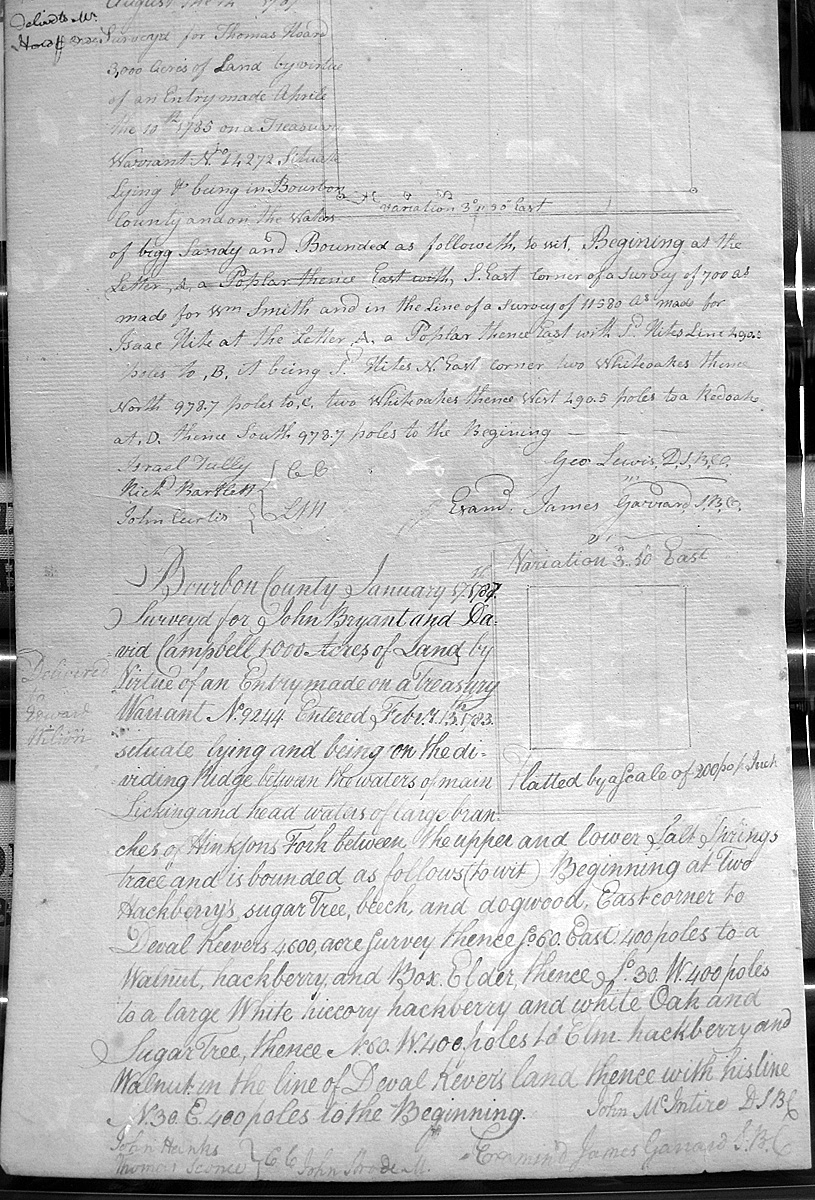 Delivd to Mr.
August the 14 1787
Surveyd for Thomas Hoard
3,000 Acres of Land by virtue
of an Entry made Aprile
the 10th 1785 on a Treasury
Warrant No. 14272 Situate
Lying & being in Bourbon
County and on the Waters
Variation 3° 30' East
of bigg Sandy and Bounded as followeth, to wit, Begining at the
Letter, A, a Poplar thence East with S. East Corner of a Survey of 700 as
made for Wm Smith and in the Line of a Survey of 11580 As made for
Isaac Hite at the Letter, A. a Poplar thence East with Sd Hites Line 490.5
poles to, B, it being Sd Hites N. East Corner two Whiteoakes thence
North 978.7 poles to, C, two Whiteoakes thence West 490.5 poles to a Redoake
at, D. thence South 978.7 poles to the Begining
Israel Tully
Richd Bartlett } C C
John Curtis } LM
Geo Lewis, D, S, B, Co,
Examd. James Garrard, S, B, C,
Variation 3°. 50' East
Bourbon County January 17th 1787.
Surveyd for John Bryant and Da-
vid Campbell 1000 Acres of Land by
Virtue of an Entry made on a Treasury
Warrant No. 9244 Entered Febry. 13th 1783.
situate lying and being on the di-
viding Ridge between the waters of main
Licking and head waters of large bran-
Delivered
to
Edward
Wilson
Platted by a Scale of 200 po pr. Inch
ches of Hinksons Fork between the upper and lower Salt Springs
trace and is bounded as follows (to wit) Beginning at Two
Hackberry's, sugar Tree, beech, and dogwood, East corner to
Deval Keevers 4600, acre Survey thence So 60. East. 400 poles to a
Walnut, hackberry, and Box Elder, thence So. 30. W. 400 poles
to a large White hiccory hackberry and white Oak and
Sugar Tree, thence N. 60. W. 400. poles to Elm hackberry and
Walnut in the line of Deval Kever's land thence with his line
N. 30. E. 400 poles to the Beginning.
John McIntire D S B C
John Hanks
Thomas Sconce } C C John Strode M.
Examin'd James Garrard S. B. C